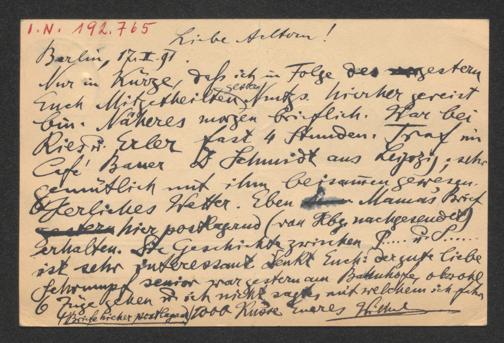 I.N. 192.765
Liebe Aeltern!
Berlin, 17.II.91.
Nur in Kürze, daß ich in Folge des gestern
Euch Mitgetheilten gestern Mitgs. hierher gereist
bin. Näheres morgen brieflich. War bei
Ries u. Erler fast 4 Stunden. Traf im
Café Bauer Dr Schmidt aus Leipzig, sehr
gemütlich mit ihm beisammen gewesen.
Herrliches Wetter. Eben Mama's Brief
hier postlagernd (von Hbg. nachgesendet)
erhalten. Die Geschichte zwischen P.... u. S.....
ist sehr interessant. Denkt Euch: der gute liebe
Schrumpf senior war gestern am Bahnhofe, obwohl
6 Züge gehen u. ich nicht sagte, mit welchem ich fahre
Briefe hierher postlagernd / 1000 Küsse Eueres